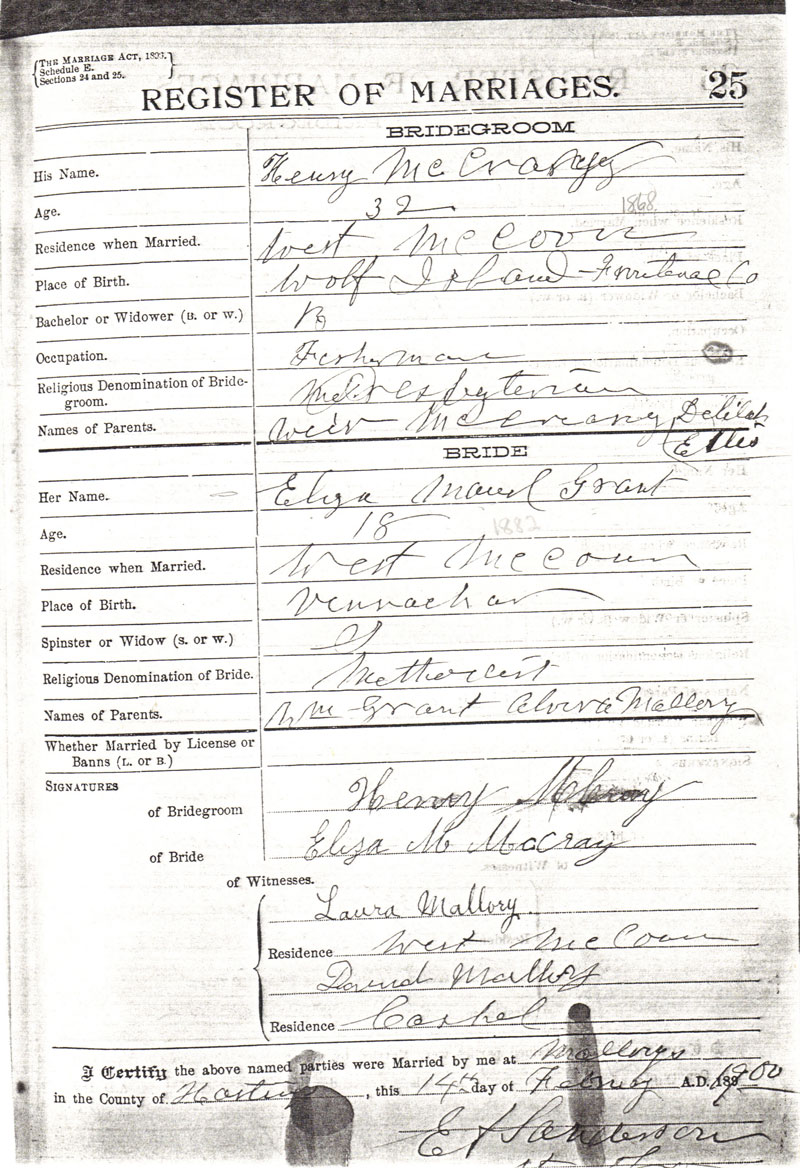 THE MARRIAGE ACT, 1896.
Schedule E.
Sections 24 and 25.
REGISTER OF MARRIAGES. 25
BRIDEGROOM
His Name. Henry McCraney
Age. 32 1868
Residence when Married. West McCoun
Place of Birth. Wolf Island - Frontenac Co
Bachelor or Widower (B. or W.) B
Occupation. Fisherman
Religious Denomination of Bride-
groom. Presbyterian
Names of Parents. Weir McCreany Delilah
Ellis
BRIDE
Her Name. Eliza Maud Grant
Age. 18 1882
Residence when Married. West McCoun
Place of Birth. Vennachar
Spinster or Widow (S. or W.) S
Religious Denomination of Bride. Methodist
Names of Parents. Wm Grant Alvira Mallory
Whether Married by License or
Banns (L. or B.)
SIGNATURES
of Bridegroom Henry
of Bride Eliza M McCray
of Witnesses.
Laura Mallory
Residence West McCoun
David Mallory
Residence Cashel
I Certify the above named parties were Married by me at Mallorys
in the County of Hastings, this 14th day of Febuery A.D. 189 1900
E A Sanderson